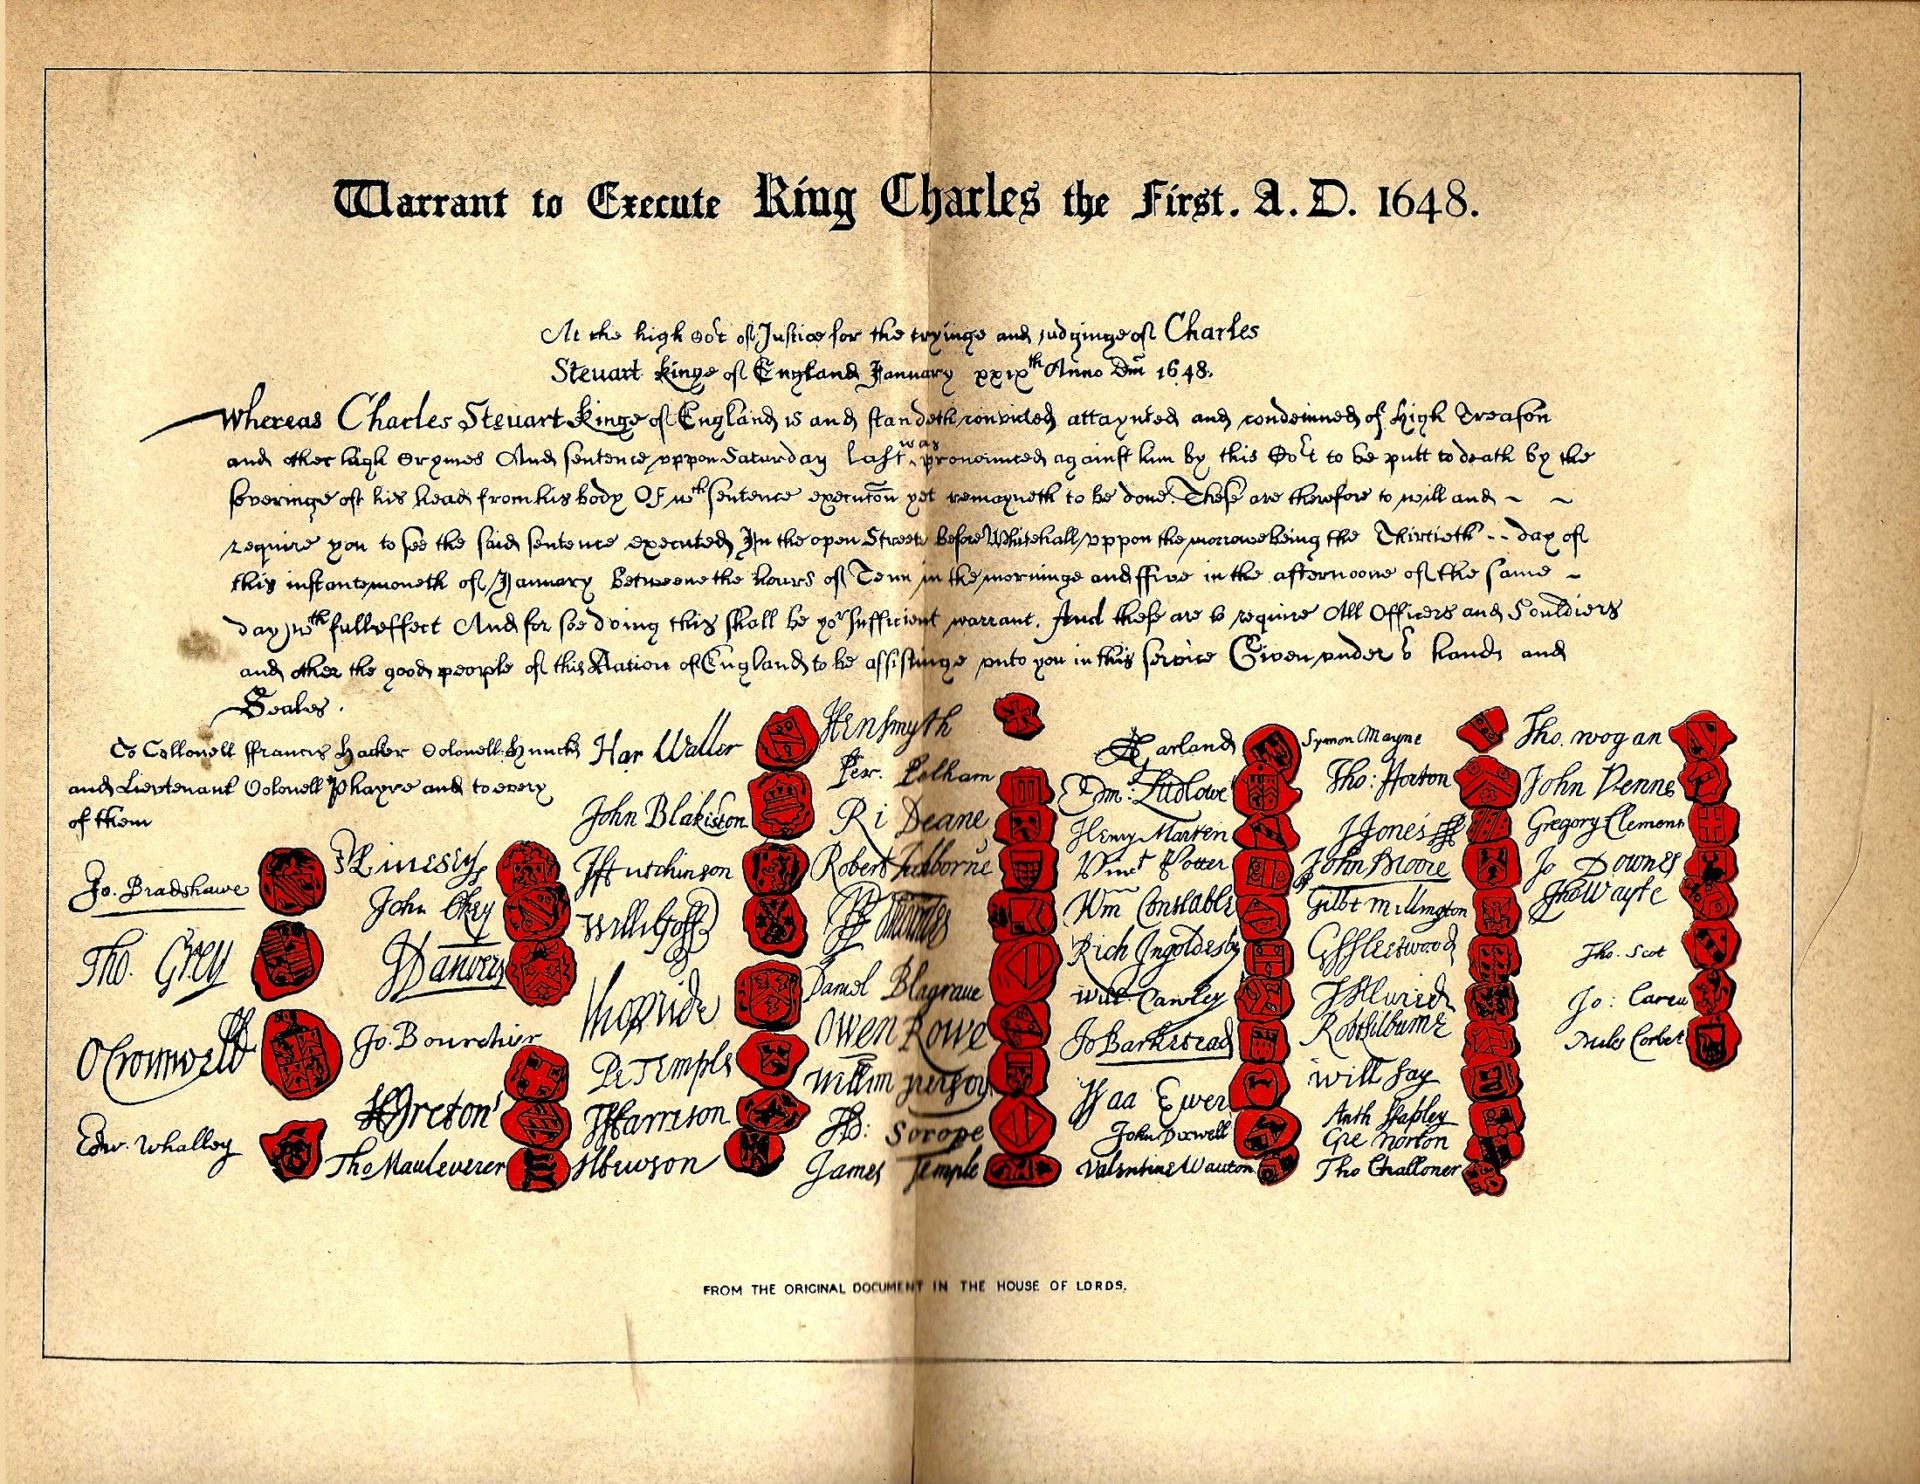 Warrant to Execute King Charles the First. A.D. 1648.
At the high Cort of Justice for the tryinge and judginge of Charles
Steuart kinge of England January xxixth Anno Dm 1648.
Whereas Charles Steuart kinge of England is and standeth convicted attaynted and condemned of High Treason
and other high Crymes And sentence uppon Saturday last was pronounced against him by this Cort to be putt to death by the
severinge of his head from his body Of wch sentence execucon yet remayneth to be done. These are therefore to will and ~ ~
require you to see the said sentence executed In the open Streete before Whitehall uppon the morrowe being the Thirtieth -- day of
this instante moneth of January betweene the houres of Tenn in the morninge and ffive in the afternoone of the same ~
day wth full effect And for soe doing this shall be yor sufficient warrant. And these are to require All Officers and Souldiers
and other the good people of this Nation of England to be assistinge unto you in this service Given under or hands and
Seales.
To Collonell ffrancis Hacker Colonell Huncks
and Lieutenant Colonell Phayre and to every
of them
Jo. Bradshawe
Tho. Grey
O Cromwell
Edw. Whalley
M Livesey
John Okey
J Danvers
Jo. Bourchier
H Ireton
Tho Mauleverer
Har Waller
John Blakiston
J Hutchinson
Willi Goffe
Tho Pride
Pe Temple
T Harrison
J Hewson
Hen Smyth
Per. Pelham
Ri Deane
Robert Tichborne
H Edwardes
Daniel Blagrave
Owen Rowe
Willm Purefoy
Ad: Scrope
James Temple
A Garland
Edm: Ludlowe
Henry Marten
Vinct Potter
Wm Constable
Rich Ingoldesby
Will Cawley
Jo Barkstead
Isaa Ewer
John Dixwell
Valentine Wauton
Symon Mayne
Tho: Horton
J Jones
John Moore
Gilbt Millington
G Fleetwood
J Alured
Rob Lilburne
Will Say
Anth Stapley
Gre Norton
Tho Challoner
Tho. Wogan
John Venne
Gregory Clement
Jo Downes
Tho Wayte
Tho. Scot
Jo: Carew
Miles Corbet
FROM THE ORIGINAL DOCUMENT IN THE HOUSE OF LORDS.